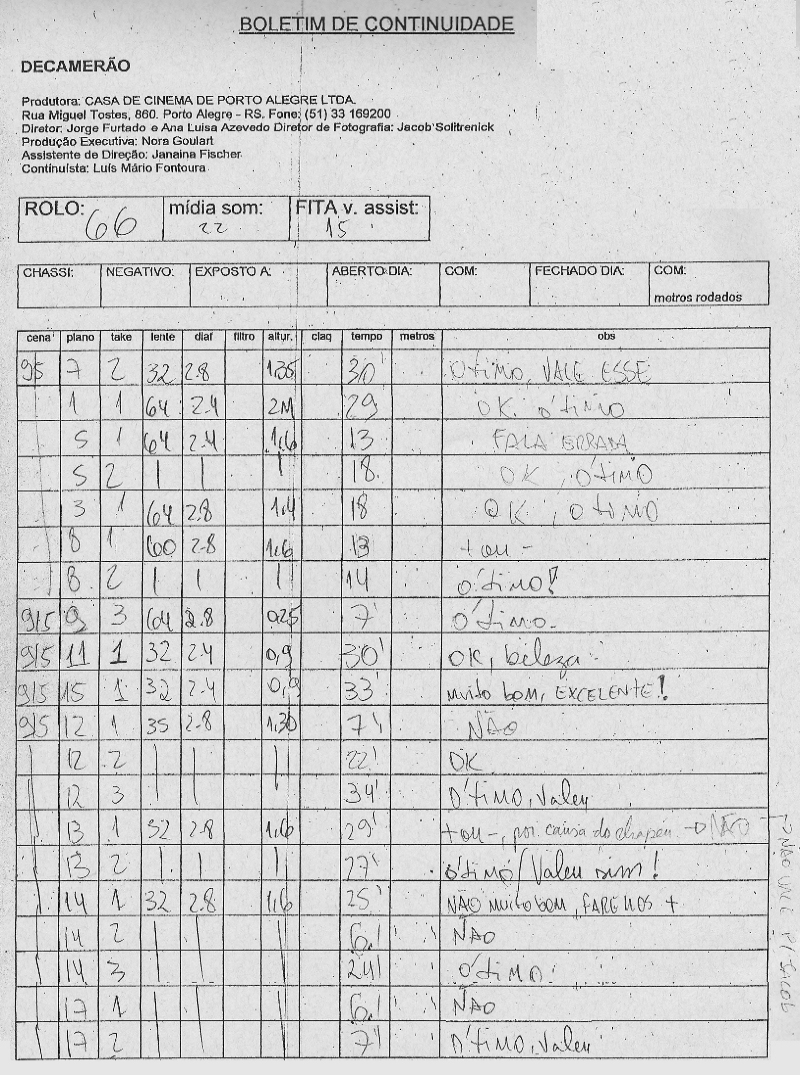 BOLETIM DE CONTINUIDADE
DECAMERÃO
Produtora: CASA DE CINEMA DE PORTO ALEGRE LTDA.
Rua Miguel Tostes, 860. Porto Alegre - RS. Fone: (51) 33 169200
Diretor: Jorge Furtado e Ana Luisa Azevedo Diretor de Fotografia: Jacob Solitrenick
Produção Executiva: Nora Goulart
Assistente de Direção: Janaina Fischer
Continuísta: Luís Mário Fontoura
ROLO: 66 mídia som: 22 FITA v. assist: 15
CHASSI: NEGATIVO: EXPOSTO A: ABERTO DIA: COM: FECHADO DIA: COM:
metros rodados
cena plano take lente diaf filtro altur. claq tempo metros obs
9/5 7 2 32 2.8 1.35 30' OTIMO, VALE ESSE
1 1 64 2.4 2M 29 OK. O'TIMO
5 1 64 2.4 1,6 13 FALA ERRADA
5 2 18 OK, O'TIMO
3 1 64 2.8 1,4 18 OK, OTIMO
8 1 60 2.8 1,6 13 + ou -
8 2 14 O'TIMO!
9/5 9 3 64 2.8 0,25 7' O'TIMO.
9/5 11 1 32 2.4 0,9 30' OK, beleza
9/5 15 1 32 2.4 0,9 33' muito bom, EXCELENTE!
9/5 12 1 35 2.8 1,30 7' NÃO
12 2 22' OK
12 3 34' O'TIMO, Valeu
13 1 32 2.8 1,6 29' + ou -, por causa do chapeu. → NÃO
13 2 27' O'TIMO/Valeu sim!
14 1 32 2.8 1,6 25' NÃO muito bom, FAREMOS +
14 2 6' NÃO
14 3 24' O'TIMO!
17 1 6' NÃO
17 2 7' O'TIMO, Valeu
→ NÃO VALE P/ JACOB